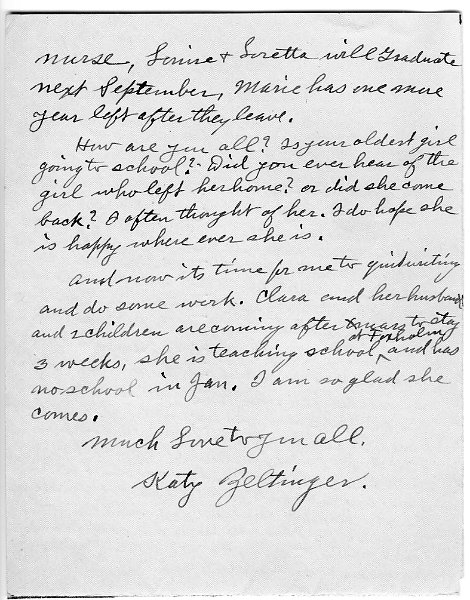 nurse, Louise + Loretta will Graduate
next September, Marie has one more
year left after they leave.
How are you all? Is your oldest girl
going to school? Did you ever hear of the
girl who left her home? or did she come
back? I often thought of her. I do hope she
is happy where ever she is.
And now its time for me to quit writing
and do some work. Clara and her husband
and 2 children are coming after Xmass to stay
at Foxholm
3 weeks, she is teaching school, and has
no school in Jan. I am so glad she
comes.
Much Love to you all.
Katy Zeltinger.